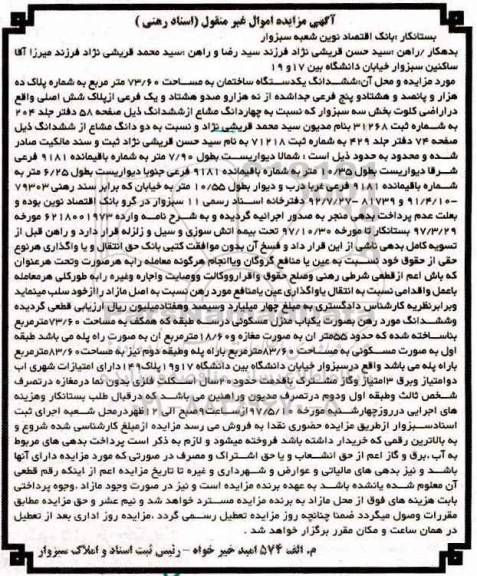 آگهی مزایده اموال غیر منقول (اسناد رهنی)
بستانکار :بانک اقتصاد نوین شعبه سبزوار
بدهکار /راهن :سید حسن قریشی نژاد فرزند سید رضا و راهن :سید محمد قریشی نژاد فرزند میرزا آقا
ساکنین سبزوار خیابان دانشگاه بین ۱۷و ۱۹
مورد مزایده و محل آن:ششدانگ یکدستگاه ساختمان به مساحت ۷۳/۶۰ متر مربع به شماره پلاک ده
هزار و پانصد و هشتادو پنج فرعی جداشده از نه هزارو صدو هشتاد و یک فرعی ازپلاک شش اصلی واقع
دراراضی کلوت بخش سه سبزوار که نسبت به چهاردانگ مشاع ازششدانگ ذیل صفحه ۵۸ دفتر جلد ۲۰۴
به شماره ثبت ۳۱۲۶۸ بنام مدیون سید محمد قریشی نژاد و نسبت به دو دانگ مشاع از ششدانگ ذیل
صفحه ۷۴ دفتر جلد ۴۲۹ به شماره ثبت ۷۱۲۱۸ به نام سید حسن قریشی نژاد ثبت و سند مالکیت صادر
شده و محدود به حدود ذیل است : شمالا دیواریست بطول ۷/۹۰ متر به شماره باقیمانده ۹۱۸۱ فرعی
شرقا دیواریست بطول ۱۰/۳۵ متر به شماره باقیمانده ۹۱۸۱ فرعی جنوبا دیواریست بطول ۶/۲۵ متر به
شماره باقیمانده ۹۱۸۱ فرعی غربا درب و دیوار بطول ۱۰/۵۵ متر به خیابان که برابر سند رهنی ۷۹۳۰۳
-۹۱/۴/۱۰ و ۸۱۷۳۹ -۹۲/۷/۲۷ دفترخانه اسناد رسمی ۱۱ سبزوار در گرو بانک اقتصاد نوین بوده و
بعلت عدم پرداخت بدهی منجر به صدور اجرائیه گردیده و به شرح نامه وارده ۶۲۱۸۰۰۱۹۷۳ مورخه
۹۷/۳/۲۹ بستانکار تا مورخه ۹۷/۱۰/۳۰ تحت بیمه آتش سوزی و سیل و زلزله قرار دارد و راهن قبل از
تسویه کامل بدهی ناشی از این قرار داد و فسخ آن بدون موافقت کتبی بانک حق انتقال و یا واگذاری هرنوع
حقی از حقوق خود نسبت به عین یا منافع گروگان ویاانجام هرگونه معامله رابه هرصورت وتحت هرعنوان
که باش اعم ازقطعی شرطی رهنی وصلح حقوق واقرارووکالت ووصایت واجاره وغیره رابه طورکلی هرمعامله
باعمل واقدامی نسبت به انتقال یاواگذاری عین یامنافع مورد رهن نسبت به اصل مازاد راازخود سلب مینماید
وبرابرنظریه کارشناس دادگستری به مبلغ چهار میلیارد وسیصد وهفتادمیلیون ریال ارزیابی قطعی گردیده
وششدانگ مورد رهن بصورت یکباب منزل مسکونی درسه طبقه که همکف به مساحت ۷۳/۶۰مترمربع
بناساخته شده که حدود ۵۵متر ان به صورت مغازه و۱۸/۶۰مترمربع آن به صورت راه پله می باشد طبقه
اول به صورت مسکونی به مساحت ۸۳/۶۰مترمربع باراه پله وطبقه دوم نیز به مساحت۸۳/۶۰مترمربع
باراه پله می باشد واقع درسبزوار خیابان دانشگاه بین دانشگاه ۱۷و۱۹پلاک۱۹۴دارای امتیازات شهری اب
دوامتیاز وبرق ۳امتیازوگاز مشترک باقدمت حدود۲۰سال اسکلت فلزی بدون نما درمغازه درتصرف
شخص ثالث وطبقه اول ودوم درتصرف مدیون وراهنین می باشد.که درقبال طلب بستانکار وهزینه
های اجرایی درروزچهارشنبه مورخه ۹۷/۵/۱۰ازساعت۹صبح الی ۱۲ظهردرمحل شعبه اجرای ثبت
اسنادسبزوار ازطریق مزایده حضوری نقدا به فروش می رسد مزایده ازمبلغ کارشناسی شده شروع و
به بالاترین رقمی که خریدار داشته باشد فروخته میشود و لازم به ذکر است پرداخت بدهی های مربوط
به آب ،برق و گاز اعم از حق انشعاب و یا حق اشتراک و مصرف در صورتی که مورد مزایده دارای آنها
باشد و نیز بدهی های مالیاتی و عوارض و شهرداری و غیره تا تاریخ مزایده اعم از اینکه رقم قطعی
آن معلوم شده یانشده باشد به عهده برنده مزایده است و نیز در صورت وجود مازاد ،وجوه پرداختی
بابت هزینه های فوق از محل مازاد به برنده مزایده مسترد خواهد شد و نیم عشر و حق مزایده مطابق
مقررات وصول میگردد ضمنا چنانچه روز مزایده تعطیل رسمی گردد ،مزایده روز اداری بعد از تعطیل
در همان ساعت و مکان مقرر برگزار خواهد شد .
م. الف ۵۷۴ امید خیر خواه – رئیس ثبت اسناد و املاک سبزوار